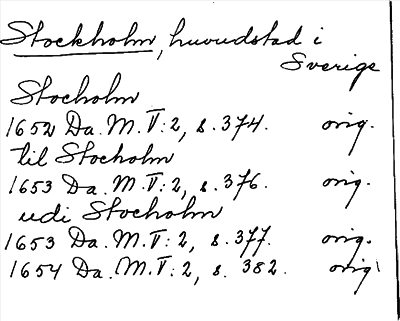 Stockholm, huvudstad i
Sverige
Stocholm
1652 Da. M. V: 2, s. 374. orig.
til Stocholm
1653 Da. M. V: 2, s. 376. orig.
udi Stocholm
1653 Da. M. V: 2, s. 377. orig.
1654 Da. M. V: 2, s. 382. orig